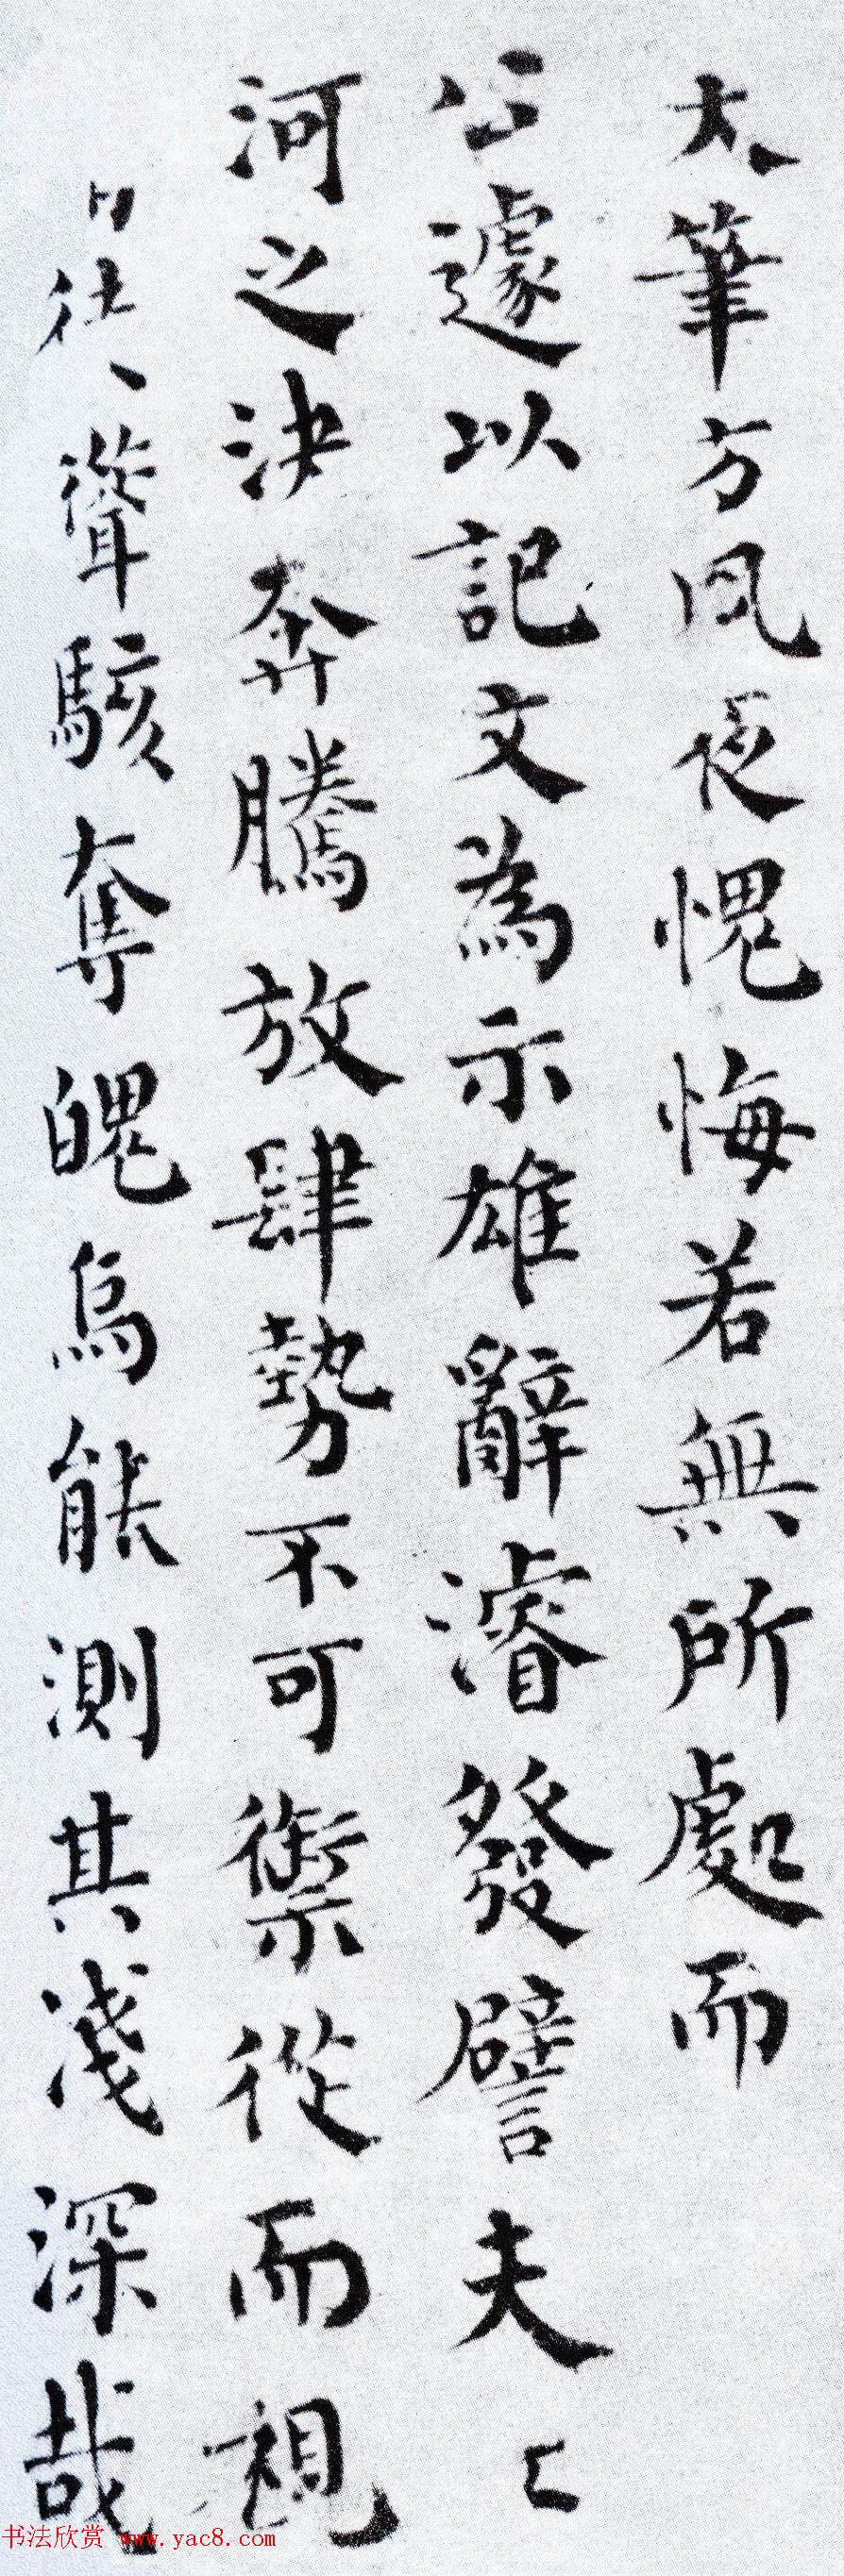 太筆方夙夜愧悔若無所處而
公遽以記文為示雄辭濬發譬夫
河之決奔騰放肆勢不可禦從而視
聳駭奪魄烏能測其淺深哉
书法欣赏 www.yac8.com